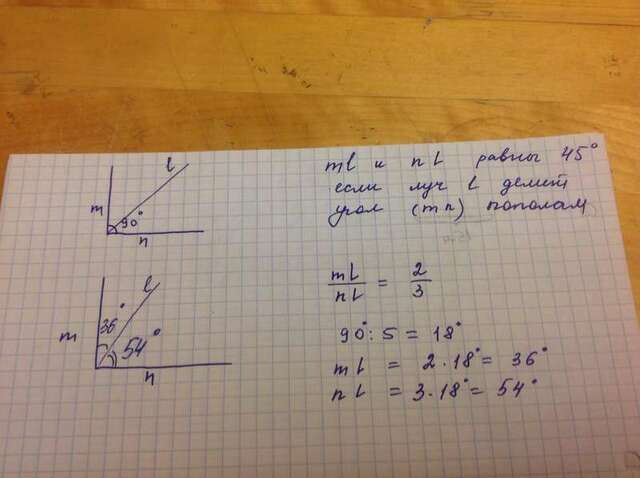 l
m
90°
n
ml и nl равны 45°
если луч l делит
угол (mn) пополам
l
36°
m
54°
n
ml/nl = 2/3
90° : 5 = 18°
ml = 2 · 18° = 36°
nl = 3 · 18° = 54°